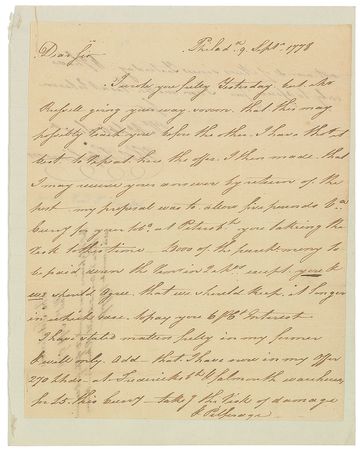 Philad.ª 9 Sept.ʳ 1778
Dear Sir
I wrote you fully Yesterday but Mr
Russell going your way soon that this may
possibly reach you before the other I have thought
best to repeat here the offer I then made that
I may receive your answer by return of the
post my proposal was to allow five pounds
Curr.y for your at you taking the
Risk to this time 3000 of the purchase money to
be paid down the in 2 except you &
we should agree that we should keep it longer
in which case to pay you 6 P Ct Interest
I have stated matters fully in my former
& will only add that I have now in my offer
270 hhds at Fredericksb.g & Falmouth warehouses
for £5 this Curr.y taking the Risk of damage